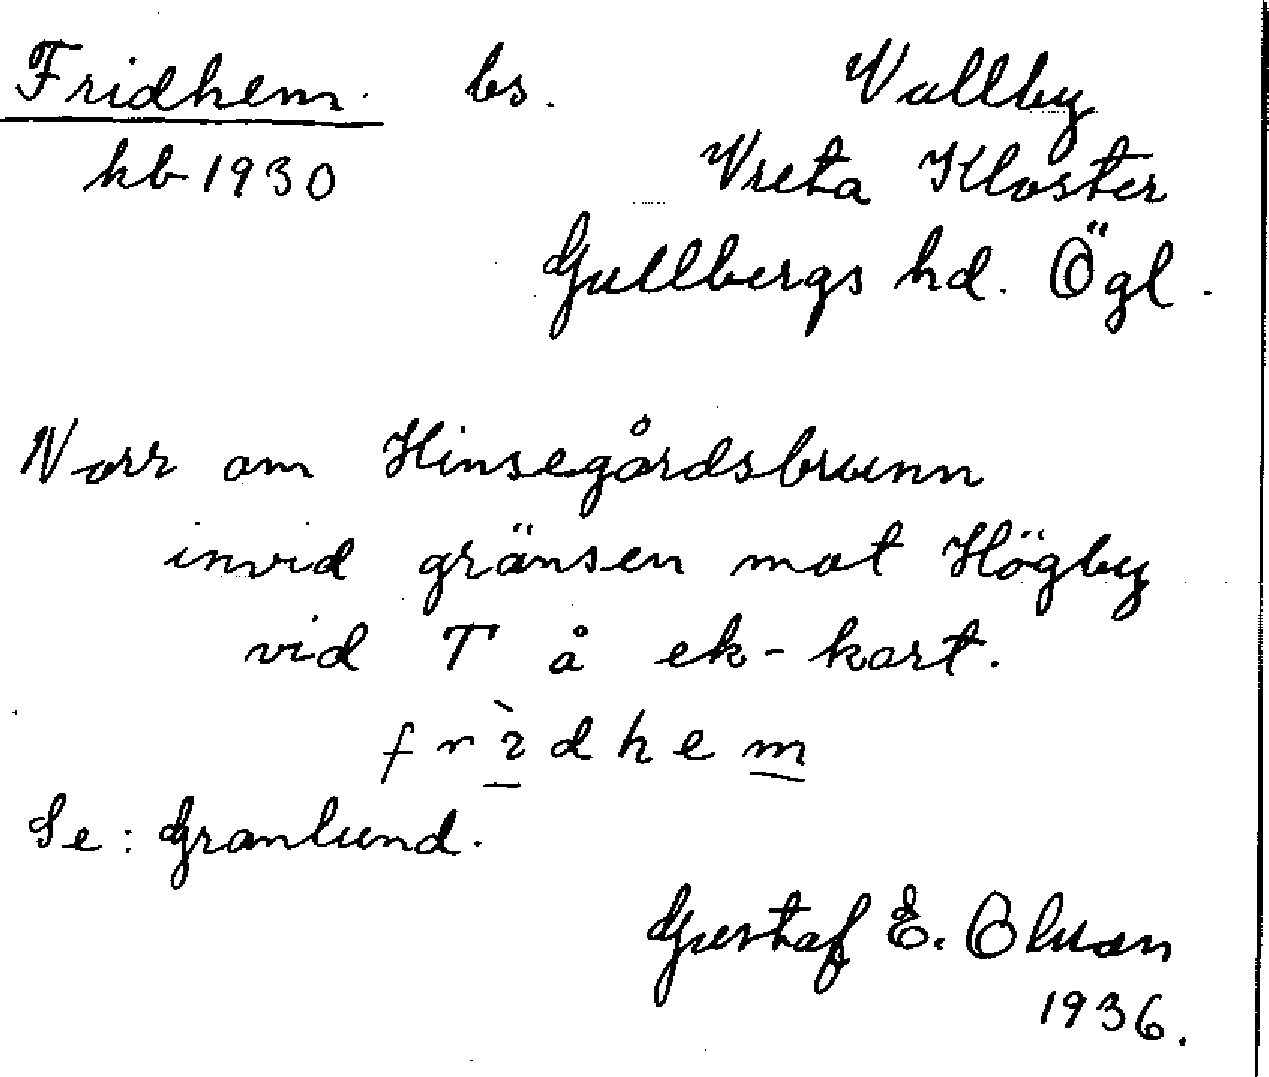 Fridhem. bs. Vallby
hb 1930 Vreta Kloster
Gullbergs hd. Ögl.
Norr om Hinsegårdsbrunn
invid gränsen mot Högby
vid T å ek-kart.
frìdhem
Se: Granlund.
Gustaf E. Olsson
1936.